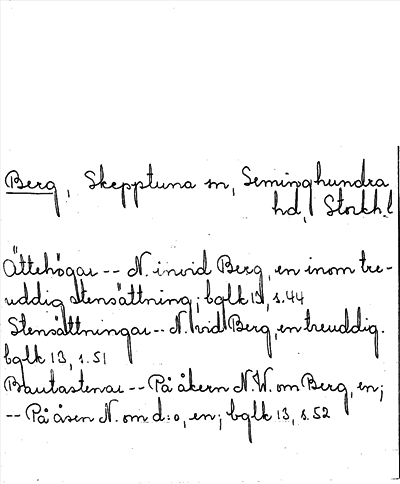 Berg, Skepptuna sn, Seminghundra
hd, Stockh.l
Ättehögar -- N. invid Berg, en inom tre-
uddig stensättning; bglk 13, s. 44
Stensättningar -- N. vid Berg, en treuddig.
bglk 13, s. 51
Bautastenar -- På åkern N.W. om Berg, en;
-- På åsen N. om d:o, en; bglk 13, s. 52